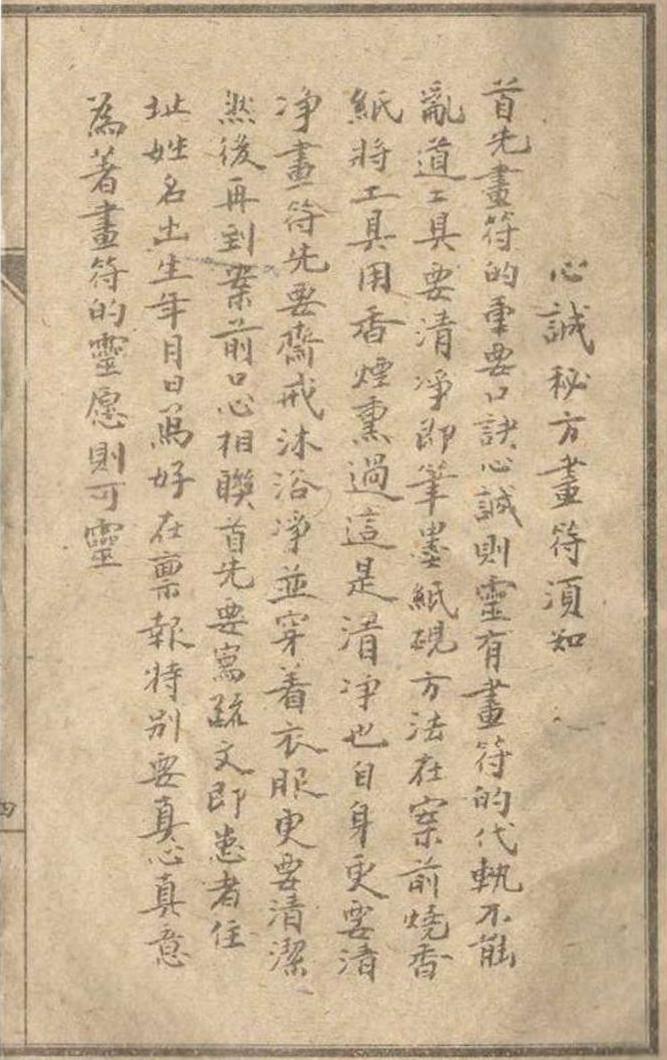 心誠秘方畫符須知
首先畫符的重要口訣心誠則靈有畫符的代執不能
亂道工具要清淨即筆墨紙硯方法在案前燒香
紙將工具用香煙熏過這是清凈也自身更要清
凈畫符先要齋戒沐浴凈並穿着衣服更要清潔
然後再到案前口心相聯首先要寫疏文即患者住
址姓名出生年月日寫好在禀報特别要真心真意
為著畫符的靈愿則可靈
四